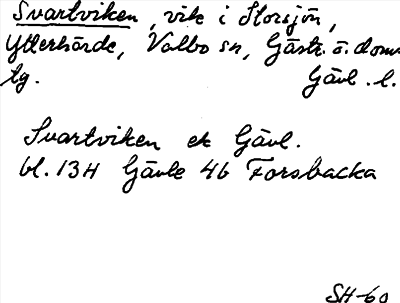 Svartviken, vik i Storsjön,
Ytterhärde, Valbo sn, Gästr. ö. doms
tg. Gävl. l.
Svartviken ek Gävl.
bl. 13H Gävle 4b Forsbacka
SH-60